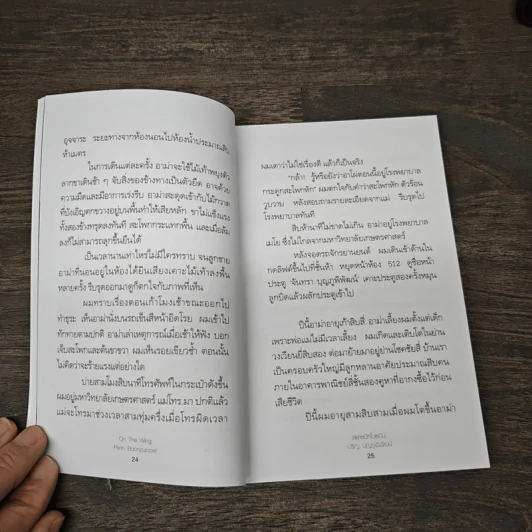 อุจจาระ ระยะทางจากห้องนอนไปห้องน้ำประมาณสิบ
ห้าเมตร
ในการเดินแต่ละครั้ง อาม่าจะใช้ไม้เท้าพยุงตัว
ลากขาเดินช้า ๆ จับสิ่งของข้างทางเป็นตัวยึด อาจด้วย
ความมืดและมีอาการเร่งรีบ อาม่าสะดุดเข้ากับไม้กวาด
ที่บังเอิญตกขวางอยู่บนพื้นทำให้เสียหลัก ขาไม่แข็งแรง
ทั้งสองข้างทรุดลงทันที สะโพกกระแทกพื้น และเมื่อล้ม
ลงก็ไม่สามารถลุกขึ้นยืนได้
เป็นเวลานานเท่าไหร่ไม่มีใครทราบ จนลูกชาย
อาม่าที่นอนอยู่ในห้องได้ยินเสียงเคาะไม้เท้าลงพื้น
หลายครั้ง รีบรุดออกมาดูก็ตกใจกับภาพที่เห็น
ผมทราบเรื่องตอนเก้าโมงเช้าขณะออกไป
ทำธุระ เห็นอาม่านั่งบนรถเข็นสีหน้าอิดโรย ผมเข้าไป
ทักทายตามปกติ อาม่าเล่าเหตุการณ์เมื่อเช้าให้ฟัง บอก
เจ็บสะโพกและต้นขาขวา ผมเห็นรอยเขียวช้ำ ตอนนั้น
ไม่คิดว่าจะร้ายแรงแต่อย่างใด
บ่ายสามโมงสิบนาทีโทรศัพท์ในกระเป๋าดังขึ้น
ผมอยู่มหาวิทยาลัยเกษตรศาสตร์ แม่โทร.มา ปกติแล้ว
แม่จะโทรมาช่วงเวลาสามทุ่มครึ่งเมื่อโทรผิดเวลา
On The Wing
Parin Boonpupipat
24
ผมเดาว่าไม่ใช่เรื่องดี แล้วก็เป็นจริง
"กล้า! รู้หรือยังว่าอาม่าตอนนี้อยู่โรงพยาบาล
กระดูกสะโพกหัก" ผมตกใจกับคำว่าสะโพกหัก ตัวร้อน
วูบวาบ หลังสอบถามรายละเอียดจากแม่ รีบรุดไป
โรงพยาบาลทันที
สิบห้านาทีไม่ขาดไม่เกิน อาม่าอยู่โรงพยาบาล
เมโย ซึ่งไม่ไกลจากมหาวิทยาลัยเกษตรศาสตร์
หลังจอดรถจักรยานยนต์ ผมเดินเข้าด้านใน
กดลิฟต์ขึ้นไปที่ชั้นห้า หยุดหน้าห้อง 512 ดูชื่อหน้า
ประตู 'จันทรา บุญภูพิพัฒน์' เคาะประตูสองครั้งหมุน
ลูกบิดแล้วผลักประตูเข้าไป
ปีนี้อาม่าอายุเก้าสิบสี่ อาม่าเลี้ยงผมตั้งแต่เด็ก
เพราะพ่อแม่ไม่มีเวลาเลี้ยง ผมเกิดและเติบโตในย่าน
วงเวียนยี่สิบสอง ต่อมาย้ายมาอยู่ย่านโชคชัยสี่ บ้านเรา
เป็นครอบครัวใหญ่มีลูกหลานอาศัยประมาณสิบคน
ภายในอาคารพาณิชย์สี่ชั้นสองคูหาที่อากงซื้อไว้ก่อน
เสียชีวิต
ปีนี้ผมอายุสามสิบสามเมื่อผมโตขึ้นอาม่า
25